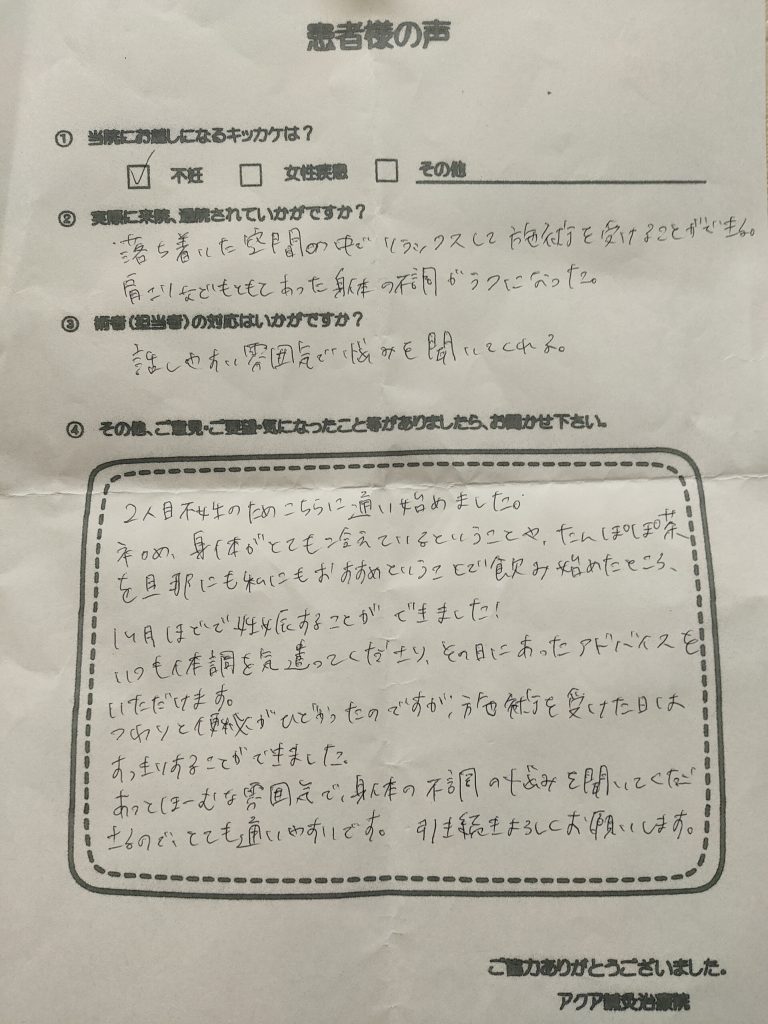 患者様の声
① 当院にお越しになるキッカケは?
☑ 不妊 □ 女性疾患 □ その他
② 実際に来院、通院されていかがですか?
落ち着いた空間の中でリラックスして施術を受けることができる。
肩こりなどもともとあった身体の不調がラクになった。
③ 術者(担当者)の対応はいかがですか?
話しやすい雰囲気で悩みを聞いてくれる。
④ その他、ご意見・ご要望・気になったこと等がありましたら、お聞かせ下さい。
2人目不妊のためこちらに通い始めました。
初め、身体がとても冷えているということや、たんぽぽ茶
を旦那にも私にもおすすめということで飲み始めたところ、
1ヶ月ほどで妊娠することができました!
いつも体調を気遣ってくださり、その日にあったアドバイスを
いただけます。
つわりと便秘がひどかったのですが、施術を受けた日は
すっきりすることができました。
あっとほーむな雰囲気で、身体の不調の悩みを聞いてくだ
さるので、とても通いやすいです。 引き続きよろしくお願いします。
ご協力ありがとうございました。
アクア鍼灸治療院